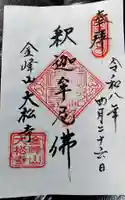 奉拝
令和八年四月二十六日
釈迦牟尼佛
金峰山大松寺